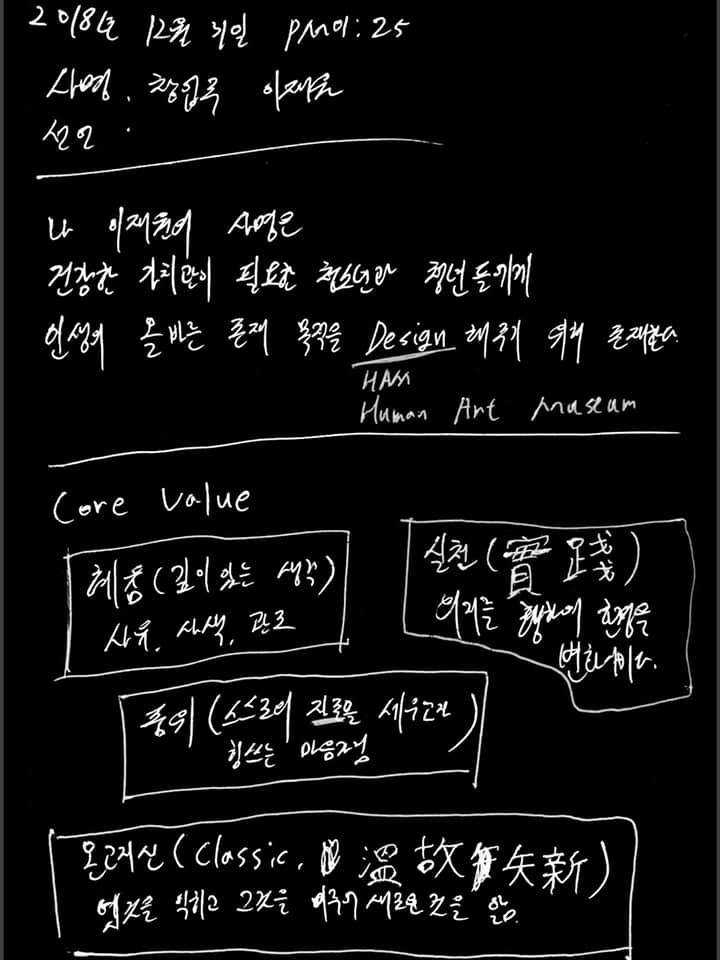 2018년 12월 31일 PM 01:25
사명. 창업목 이재윤
선언.
나 이재윤의 사명은
건강한 가치관이 필요한 청소년과 청년들에게
인생의 올바른 존재 목적을 Design 해주기 위해 존재한다.
HAM
Human Art Museum
Core Value
실천(實踐)
의지를 행하여 환경을
변화시키다.
(깊이 있는 생각)
사유, 사색, 관조
품위(스스로의 진로를 세우고자
힘쓰는 마음가짐)
온고지신(Classic, 溫故知新)
옛것을 익히고 그것을 미루어 새로운 것을 앎.